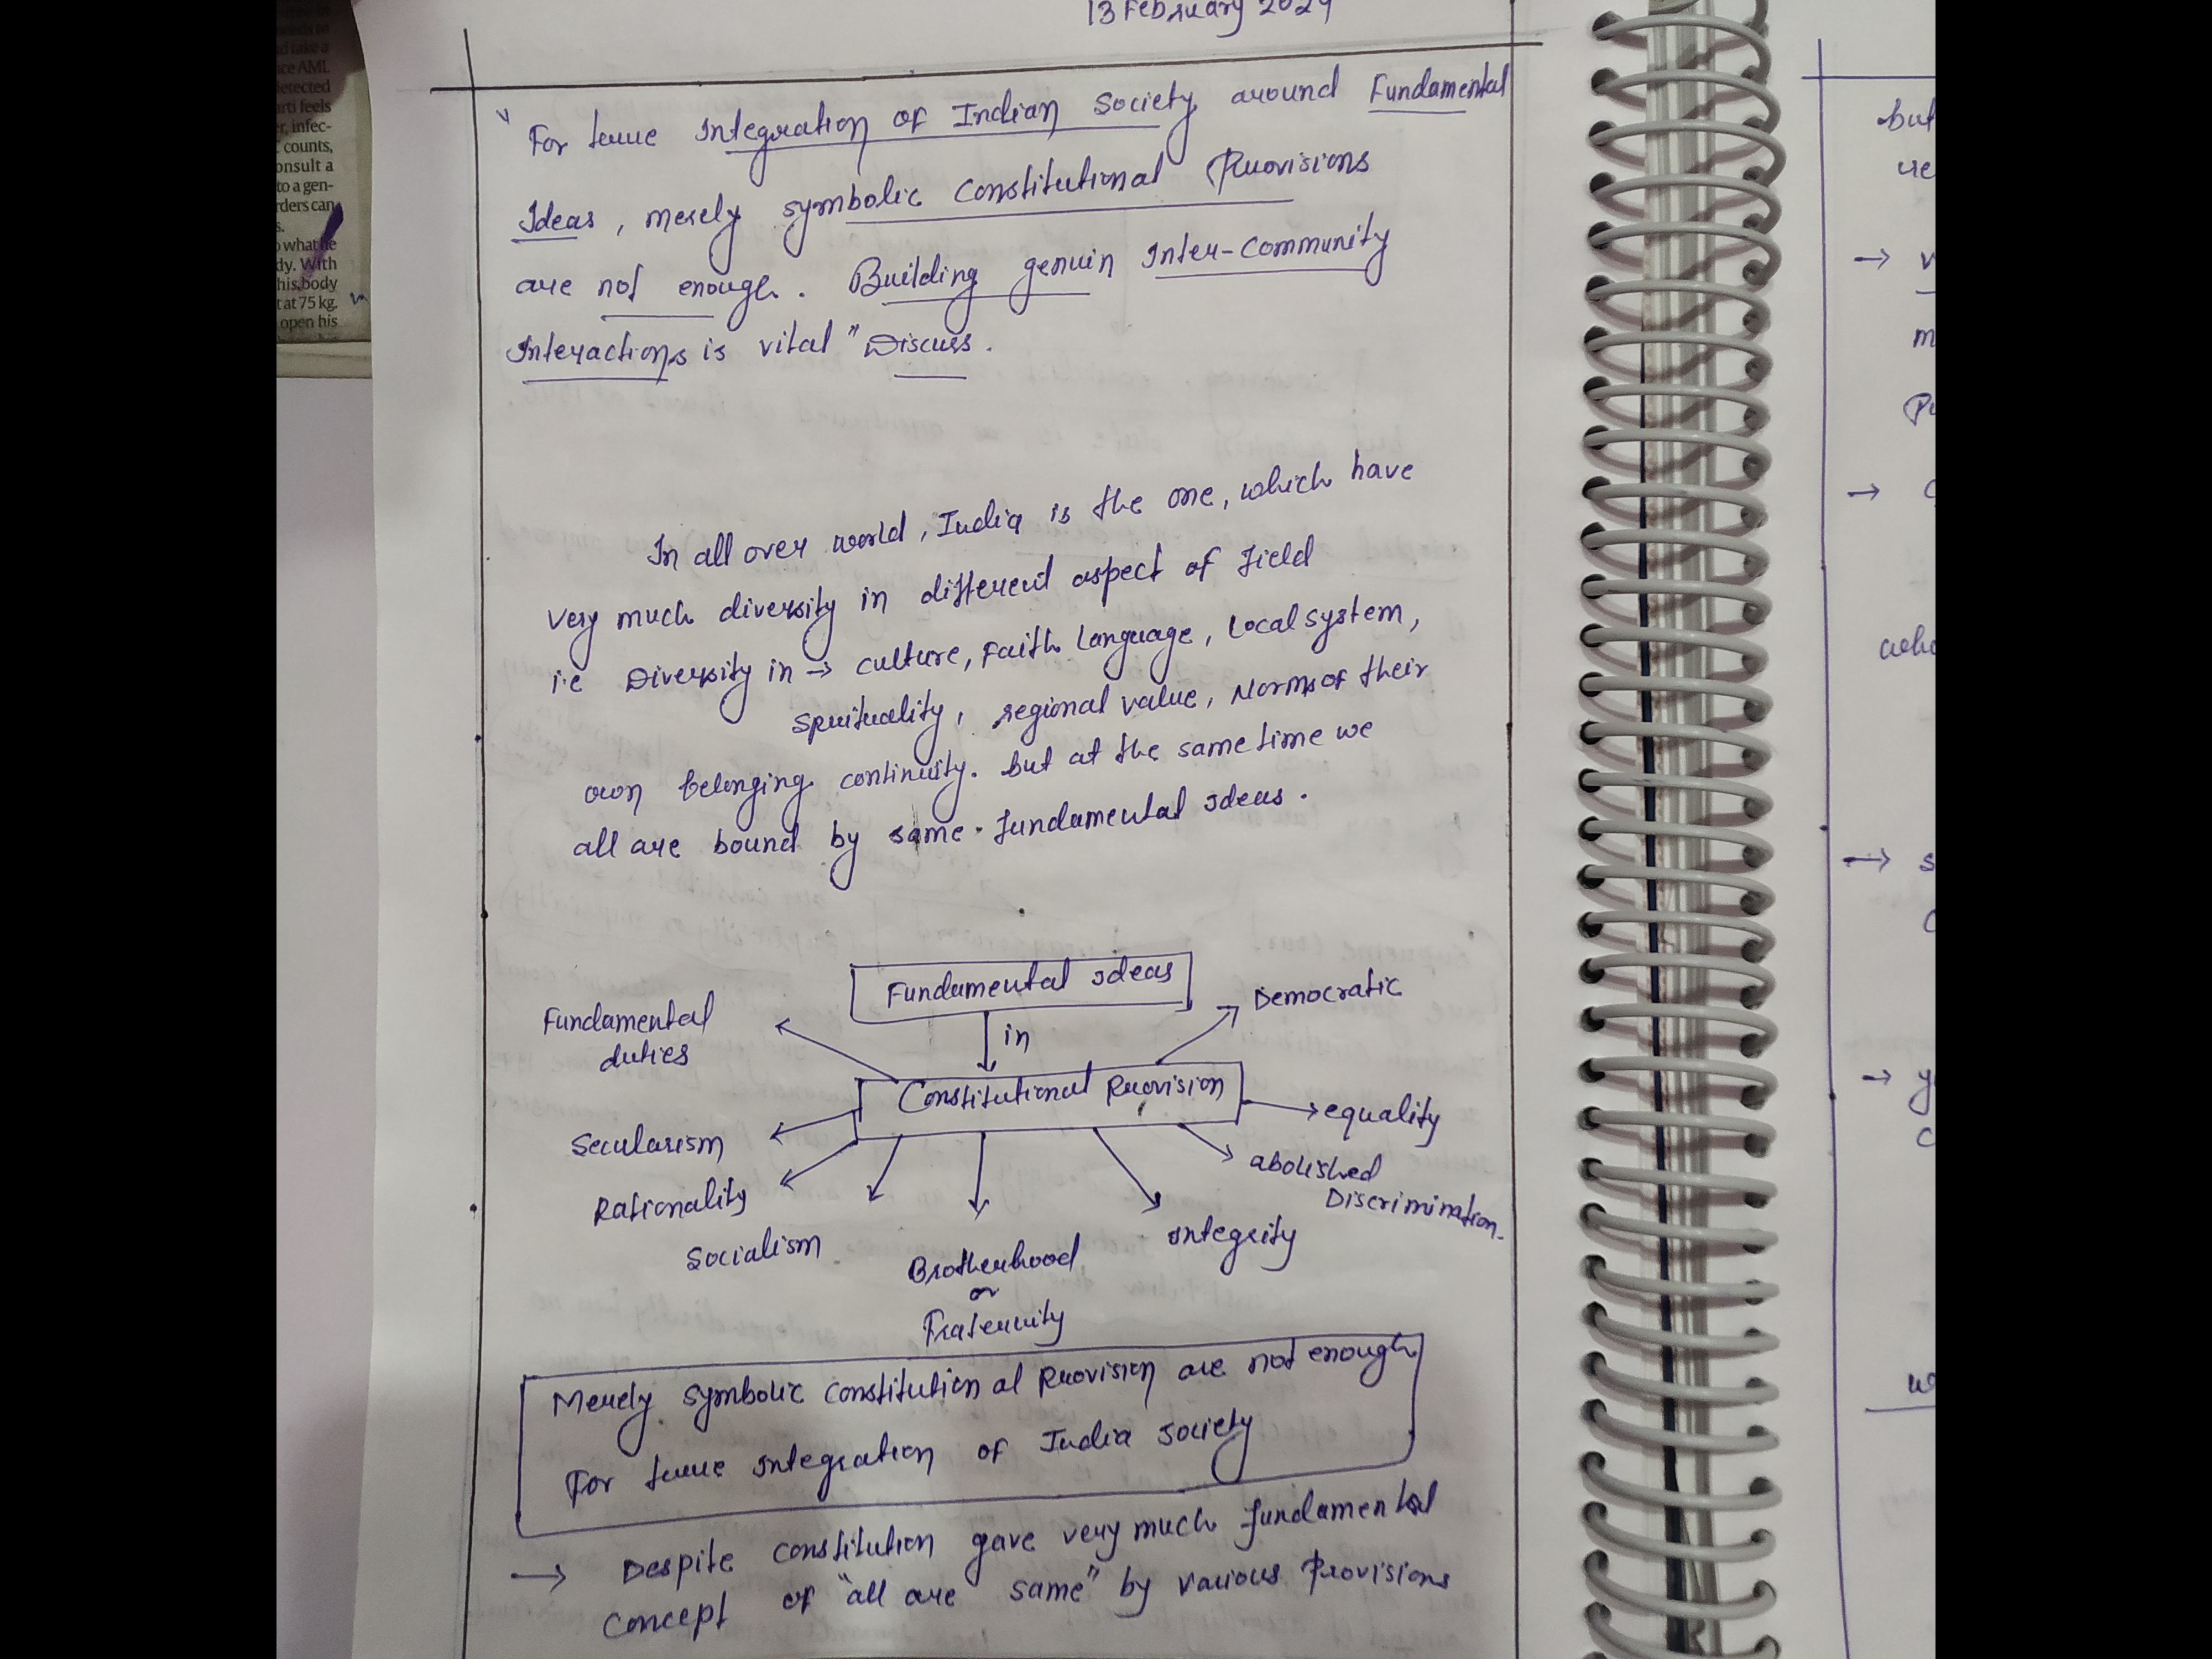 13 February 2024
"For true Integration of Indian Society around Fundamental
Ideas, merely symbolic Constitutional Provisions
are not enough. Building genuin Inter-Community
Interactions is vital" Discuss.
In all over world, India is the one, which have
very much diversity in different aspect of field
i.e Diversity in → culture, Faith, Language, Local system,
Sprituality, regional value, Norms of their
own belonging continuity. but at the same time we
all are bound by same fundamental Ideas.
Fundamental Ideas
in
Constitutional Provision
Democratic
equality
abolished
Discrimination
Integrity
Brotherhood
or
Fraternity
Socialism
Rationality
Secularism
Fundamental
duties
Merely symbolic constitutional Provision are not enough
For true Integration of India Society
→ Despite constitution gave very much fundamental
concept of "all are same" by various Provisions
ce AML
detected
arti feels
r, infec-
counts,
onsult a
to a gen-
rders can
s.
o what he
dy. With
his body
t at 75 kg.
open his
but